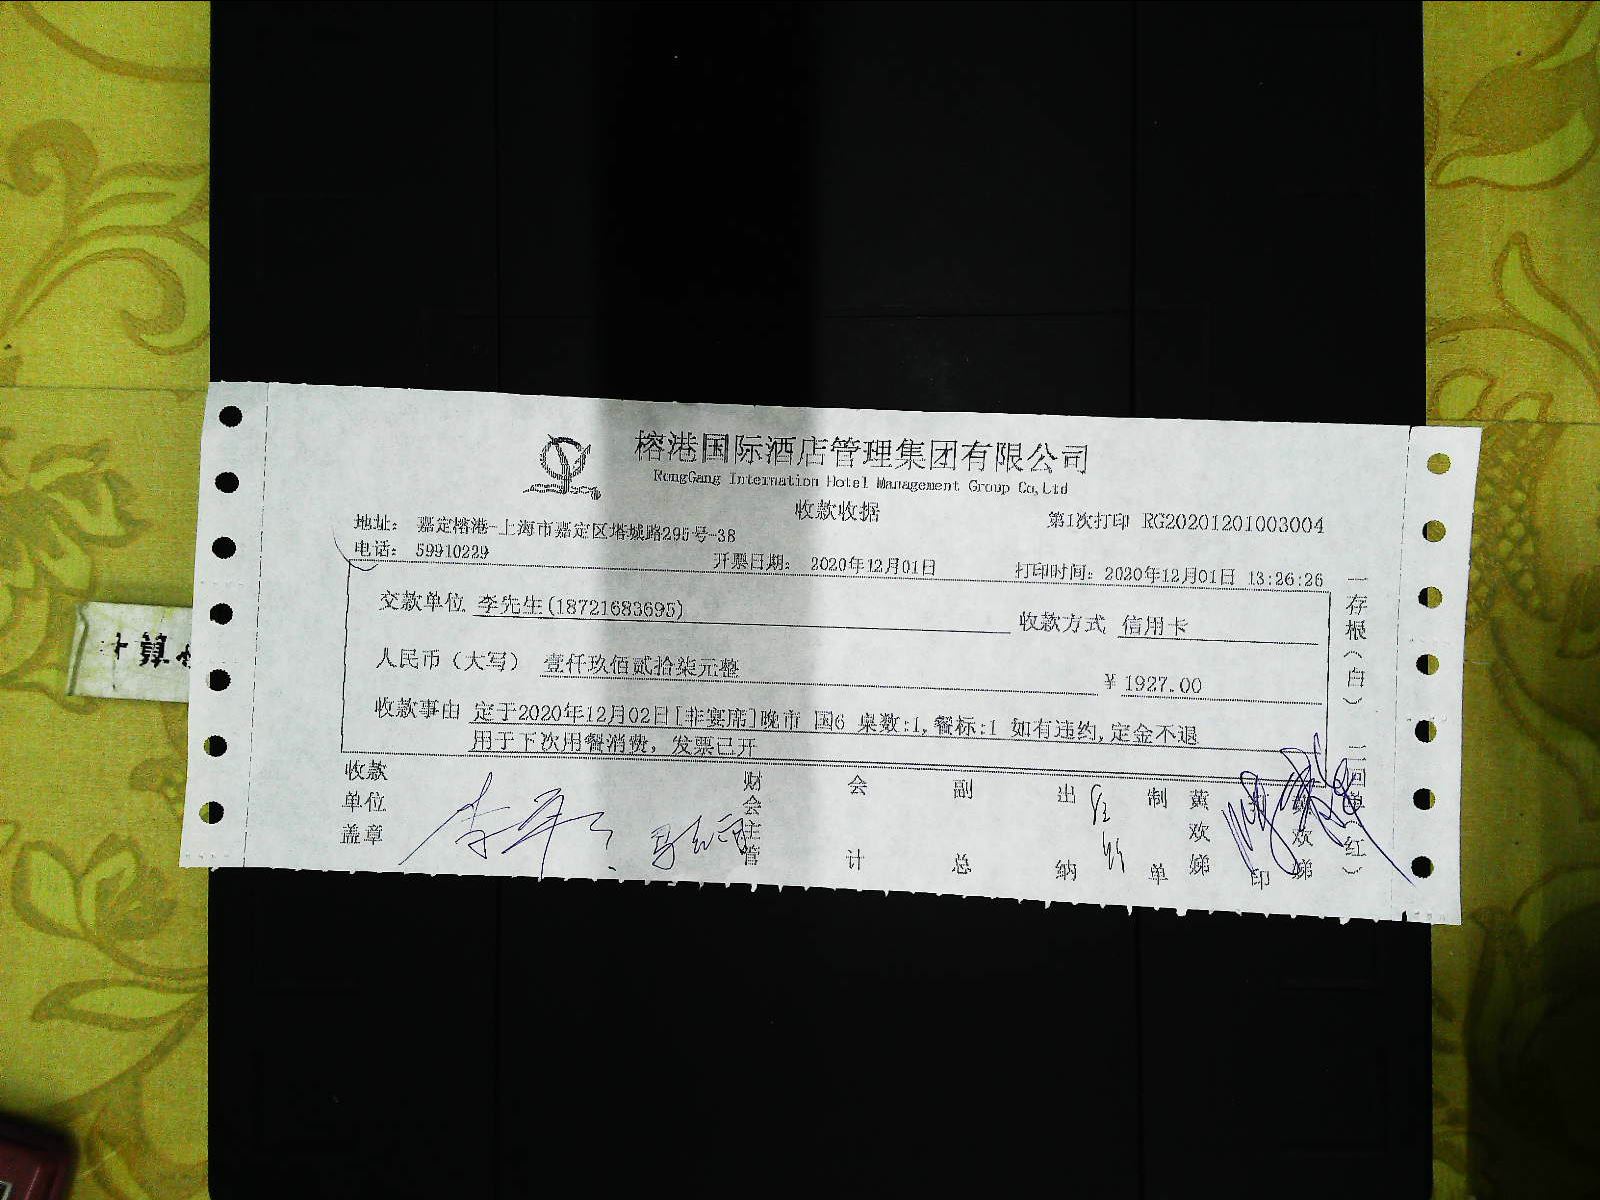 榕港国际酒店管理集团有限公司
RongGang Internation Hotel Management Group Co,Ltd
收款收据
第1次打印 RG20201201003004
地址： 嘉定榕港-上海市嘉定区塔城路295号-38
电话： 59910229
开票日期： 2020年12月01日
打印时间：2020年12月01日 13:26:26
交款单位 李先生(18721683695)
收款方式 信用卡
人民币（大写） 壹仟玖佰贰拾柒元整
￥1927.00
收款事由 定于2020年12月02日[非宴席]晚市 国6 桌数:1,餐标:1 如有违约,定金不退
用于下次用餐消费，发票已开
收款单位盖章
财会主管
会计
副总
出纳
制单
黄欢娣
一存根（白）
二回单（红）
计算